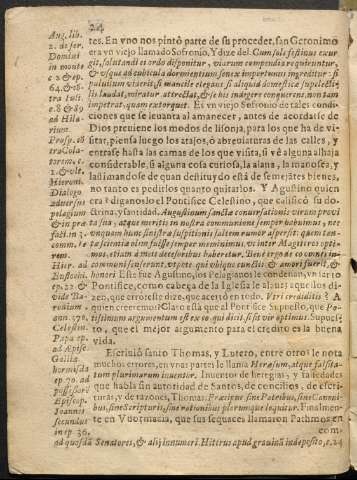 24
Aug. lib.
2. de ser.
Domini
in monte
c 2 & ep.
64. & 
8 & 89
ad Hila
rium.
Prosp. 
tra Cola-
torem. c.
Hieron.
Dialogo
adversus
pelagium
& in præ
fat. in
com.
Hier. ad
Eustoch.
ep. 22 &
vide Ba-
ronium
ann. 
Celestin.
Papa ep.
ad Episc.
Gallia
ep. 
Episcop.
Ioannes
secundus
in ep. 36.
tes. En vno nos pintò parte de su proceder, san Geronimo
era vn viejo llamado Sofronio, Y dize del. Cum sole festinus exur
git, salutandi et ordo disponitur, viarum compendia requiruntur,
& usque ad cubicula dormientium senex importunus ingreditur: si
pulvillum viderit, si mantile elegans, si aliquid domesticæ supellecti-
lis laudat, miratur attrectat, & se his indigere conquerens, non tam
impetrat, quam extorquet. Es vn viejo Sofronio de tales condi-
ciones que se levanta al amanecer, antes de acordarse de
Dios previene los modos de lisonja, para los que ha de vi-
sitar, piensa luego los atajos, ò abreviaturas de las calles, y
entrase hasta las camas de los que visita, si vè alguna alhaja
considerable, si alguna cosa curiosa, la alaba, la manosea, y
lastimandose de quan destituydo està de semejātes bienes,
no tanto es pedirlos quanto quitarlos. Y Agustino quien
era? diganoslo el Pontifice Celestino, que calificò su do-
ctrina, y santidad. Augustinum sanctæ conversationis virum pro vi
ta sua, atque meritis in nostra communione semper habuimus, nec
unquam hunc sinistræ suspitionis saltem rumor aspersit: quem tan-
tæ scientiæ olim fuisse semper meminimus, ut inter Magistros opti-
mos, etiam à meis decessoribus haberetur. Bene ergo de eo omnes in
communi senserunt, utpote qui ubique cunctis & amori fuerit, &
honori Este fue Agustino, los Pelagianos le condenan, vn santo
Pontifice, como cabeça de la Iglesia le alaba; aquellos di-
zen, que erró; este dize, que acertò en todo. Veri creditis? A
quien creeremos? Claro està que al Pontifice Supuesto, que Po-
tissimum argumentum est ex eo qui dicit, si sit vir optimus. Supues-
to, que el mejor argumento para el credito es la buena
vida.
Escriviò santo Thomas, y Lutero, entre otros le nota
muchos errores, en varias partes le llama Heresum, atque falsita-
tum plurimarum inventor. Inventor de heregias, y falsedades
que habla sin autoridad de Santos, de concilios, de escri-
turas, y de razones, Thomas. Præcipue sine Patribus, sine Canoni-
bus, sine Scripturis, sine rationibus plerumque loquitur. Finalmen-
te en 
com-
ad quosdā Senatores, & alij innumeri.